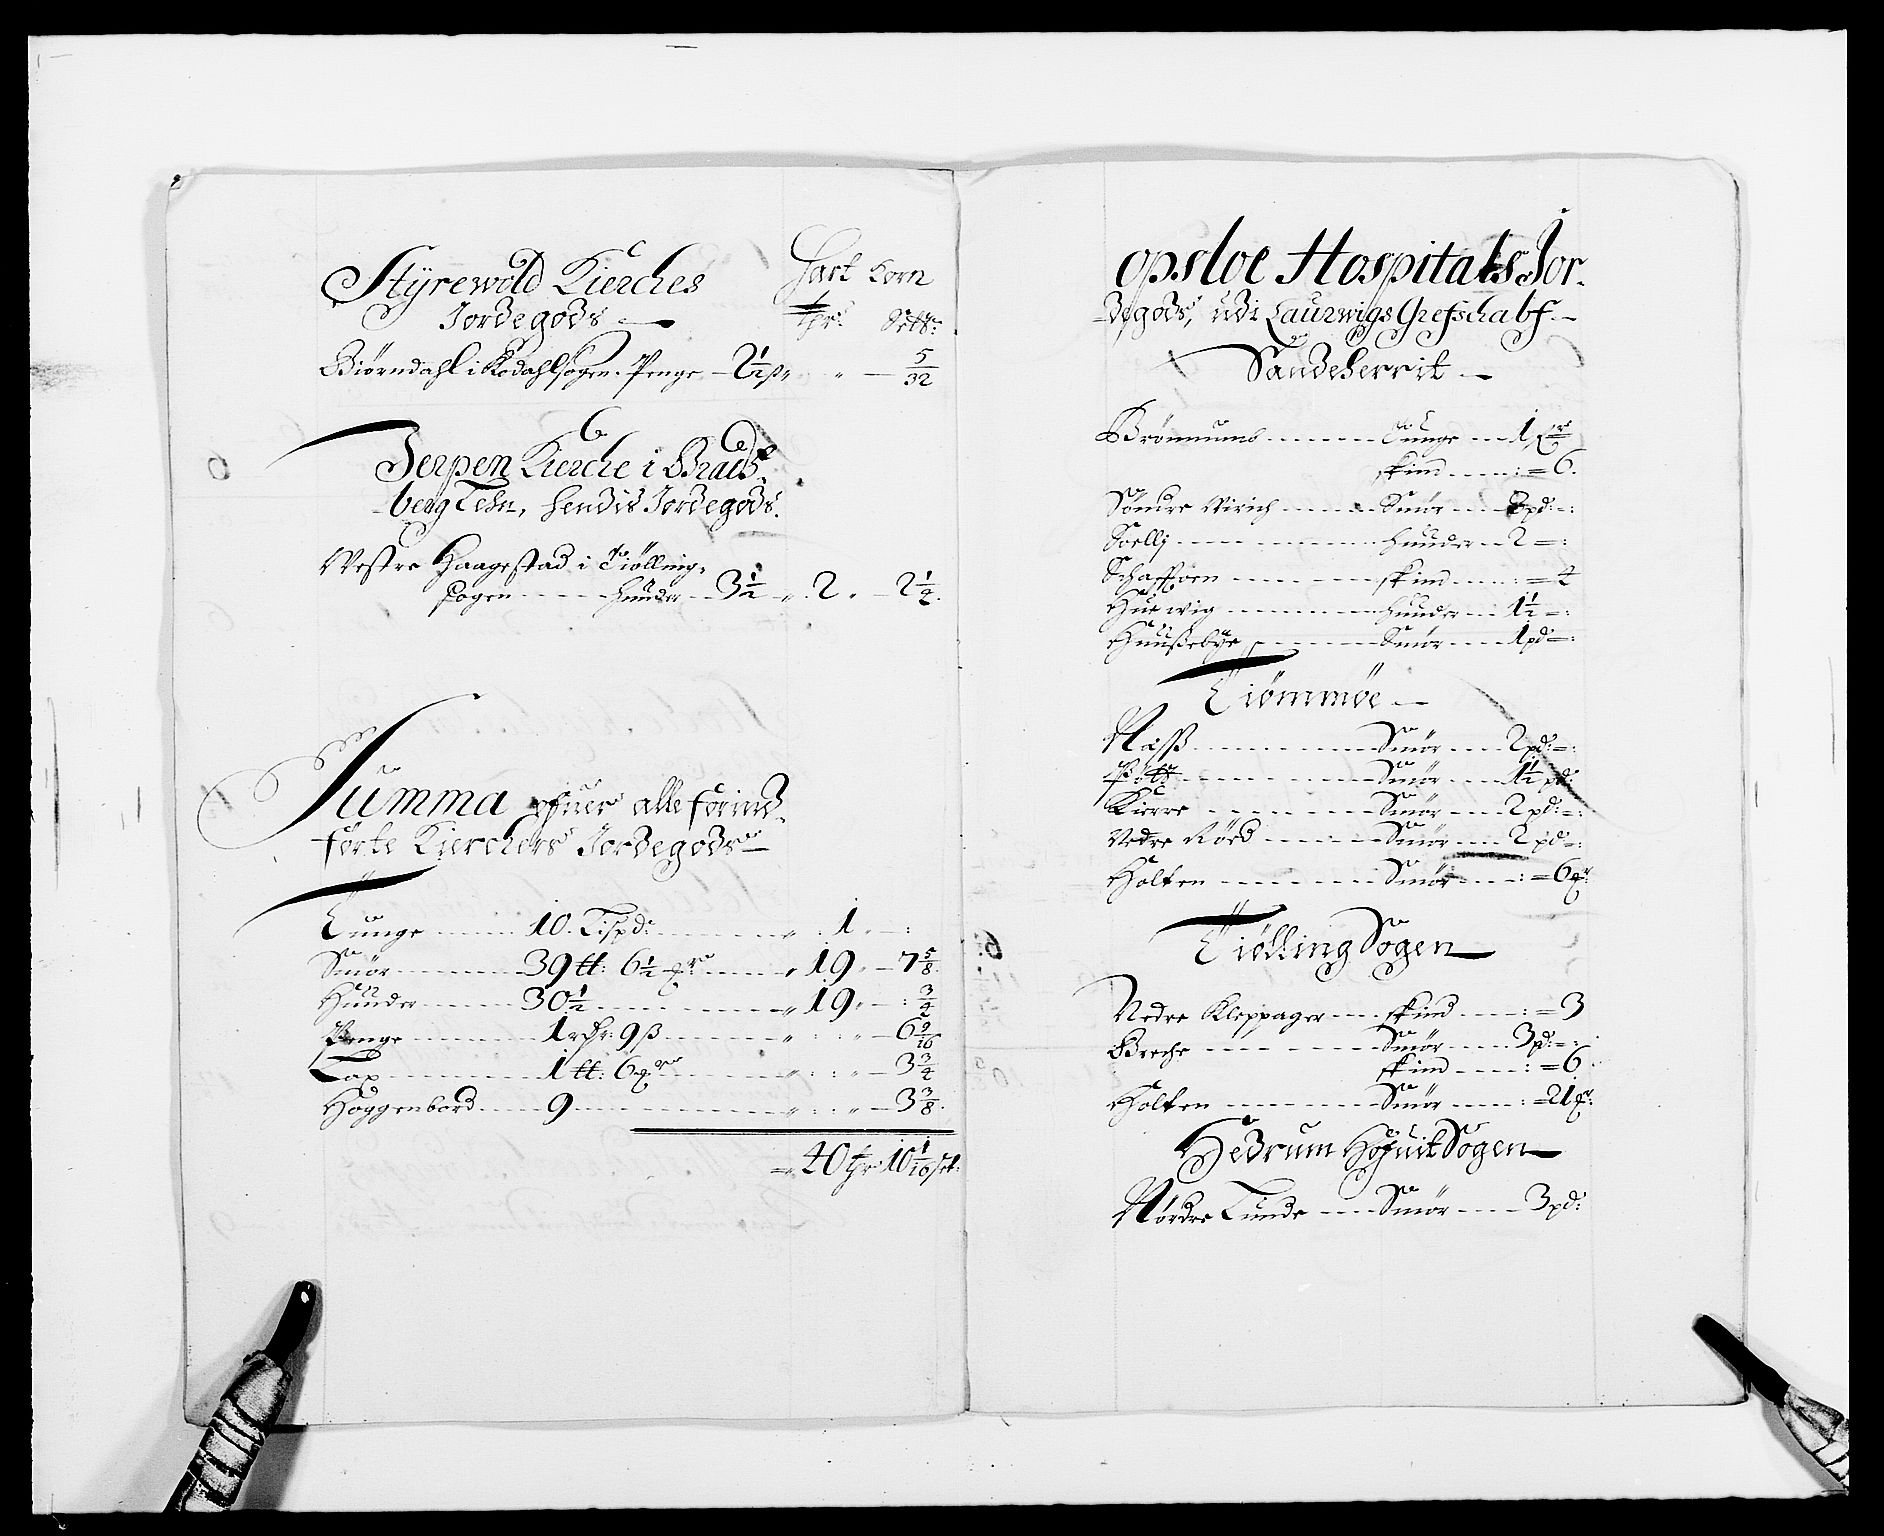 Styrewold Kierches Hart Korn
Jordegods tpr: Sett:
Biørndahl i Kodahlsogen. Penge - 2 1/2 ß " " - 5/32
Jerpen Kierche i Brats-
berg Lehn, hendis Jordegods.
Westre Haagestad i Tiølling-
sogen ---- huuder -- 3 1/2 " 2 " - 2 1/4.
Summa ofuer alle forind-
førte Kierchers Jordegods
Tunge 10. Lispd: " 1 " - :
Smør 39 tt: 6 1/2 " 19 " - 7 5/8
Huuder 30 1/2 " 19 " - : 3/4
Penge 1 rdr: 9 ß " : " - 6 9/16
Lax 1 tt: 6 " : : " - 3 3/4
Høggenbord 9 " : " - 3 3/8.
= 40 tpr: 10 1/16 set:
Opsloe Hospitals Jor-
degods, udi Laurwigs Grefschabf
Sandeherrit
Brønnumb Tunge 1
skind : = 6.
Søndre Wirich Smør 3 pd: - :
Soelly huuder 2 = :
Schaffoen skind : = 4
Huewig huuder 1 1/2 = :
Huußebye Smør 1 pd = :
Tiømmøe
Næsß Smør 2 pd: = :
Smør 1 1/2 pd:
Kierre Smør 2 pd: = :
Nedre Røed Smør 2 pd = :
Holten Smør : = 6
Tiølling Sogen
Nedre Kleppager skind : = 3
Breche Smør 3 pd: = :
skind : = 6
Holten Smør : = 21
Hedrum Hofuit Sogen
Nordre Tunde Smør 3 pd: